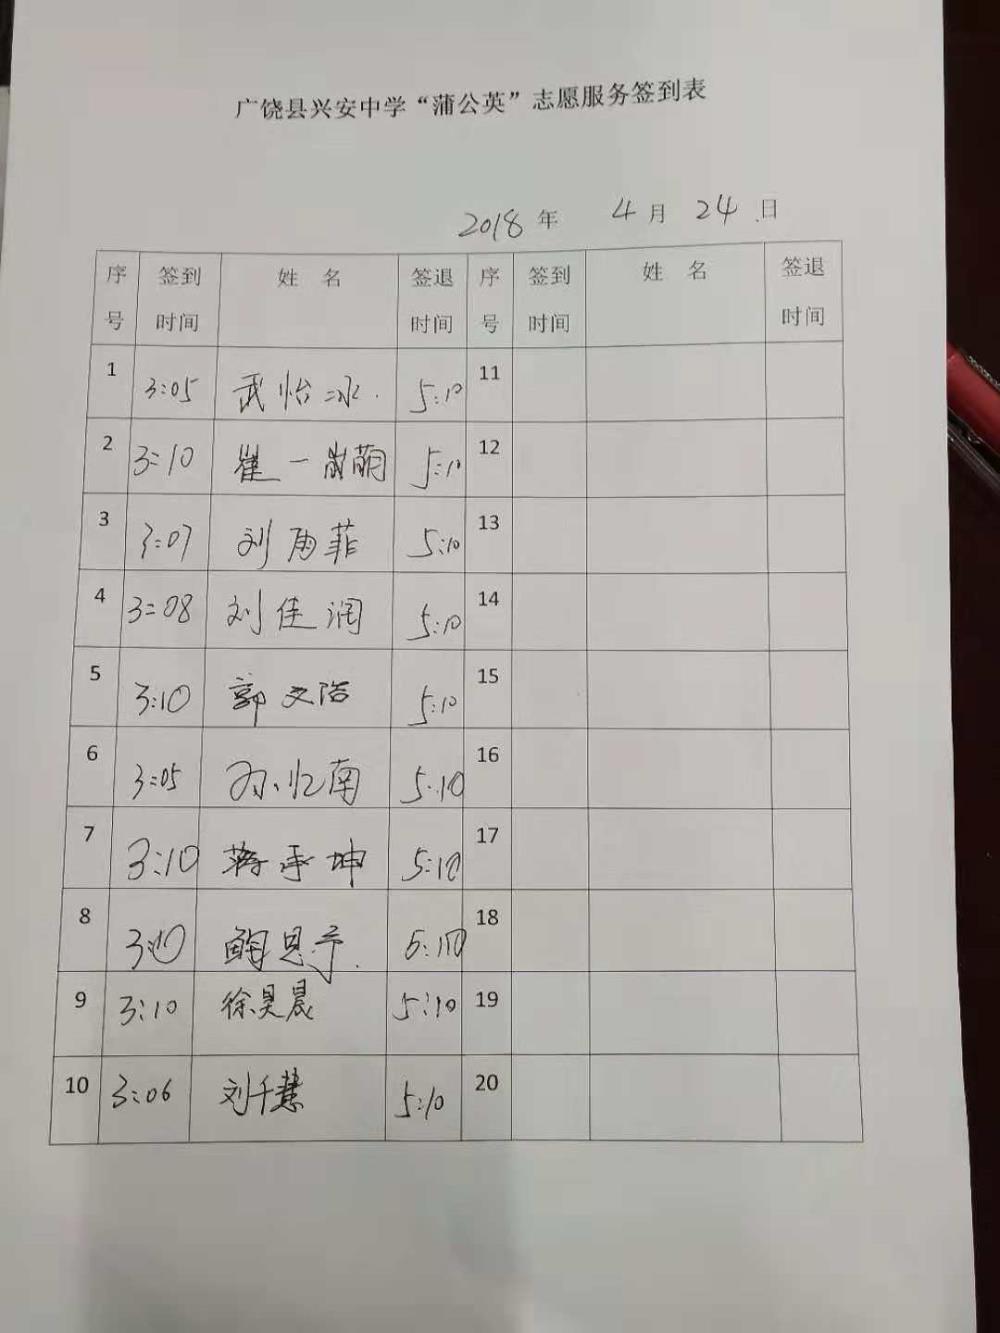 广饶县兴安中学“蒲公英”志愿服务签到表
2018 年 4 月 24 日
序号 签到时间 姓 名 签退时间 序号 签到时间 姓 名 签退时间
1 3:05 武怡冰 5:10 11
2 3:10 崔一 萌 5:10 12
3 3:07 刘雨菲 5:10 13
4 3:08 刘佳润 5:10 14
5 3:10 郭文浩 5:10 15
6 3:05 孙忆南 5:10 16
7 3:10 蒋 坤 5:10 17
8 3:10 鲍思予 5:10 18
9 3:10 徐昊晨 5:10 19
10 3:06 刘千慧 5:10 20